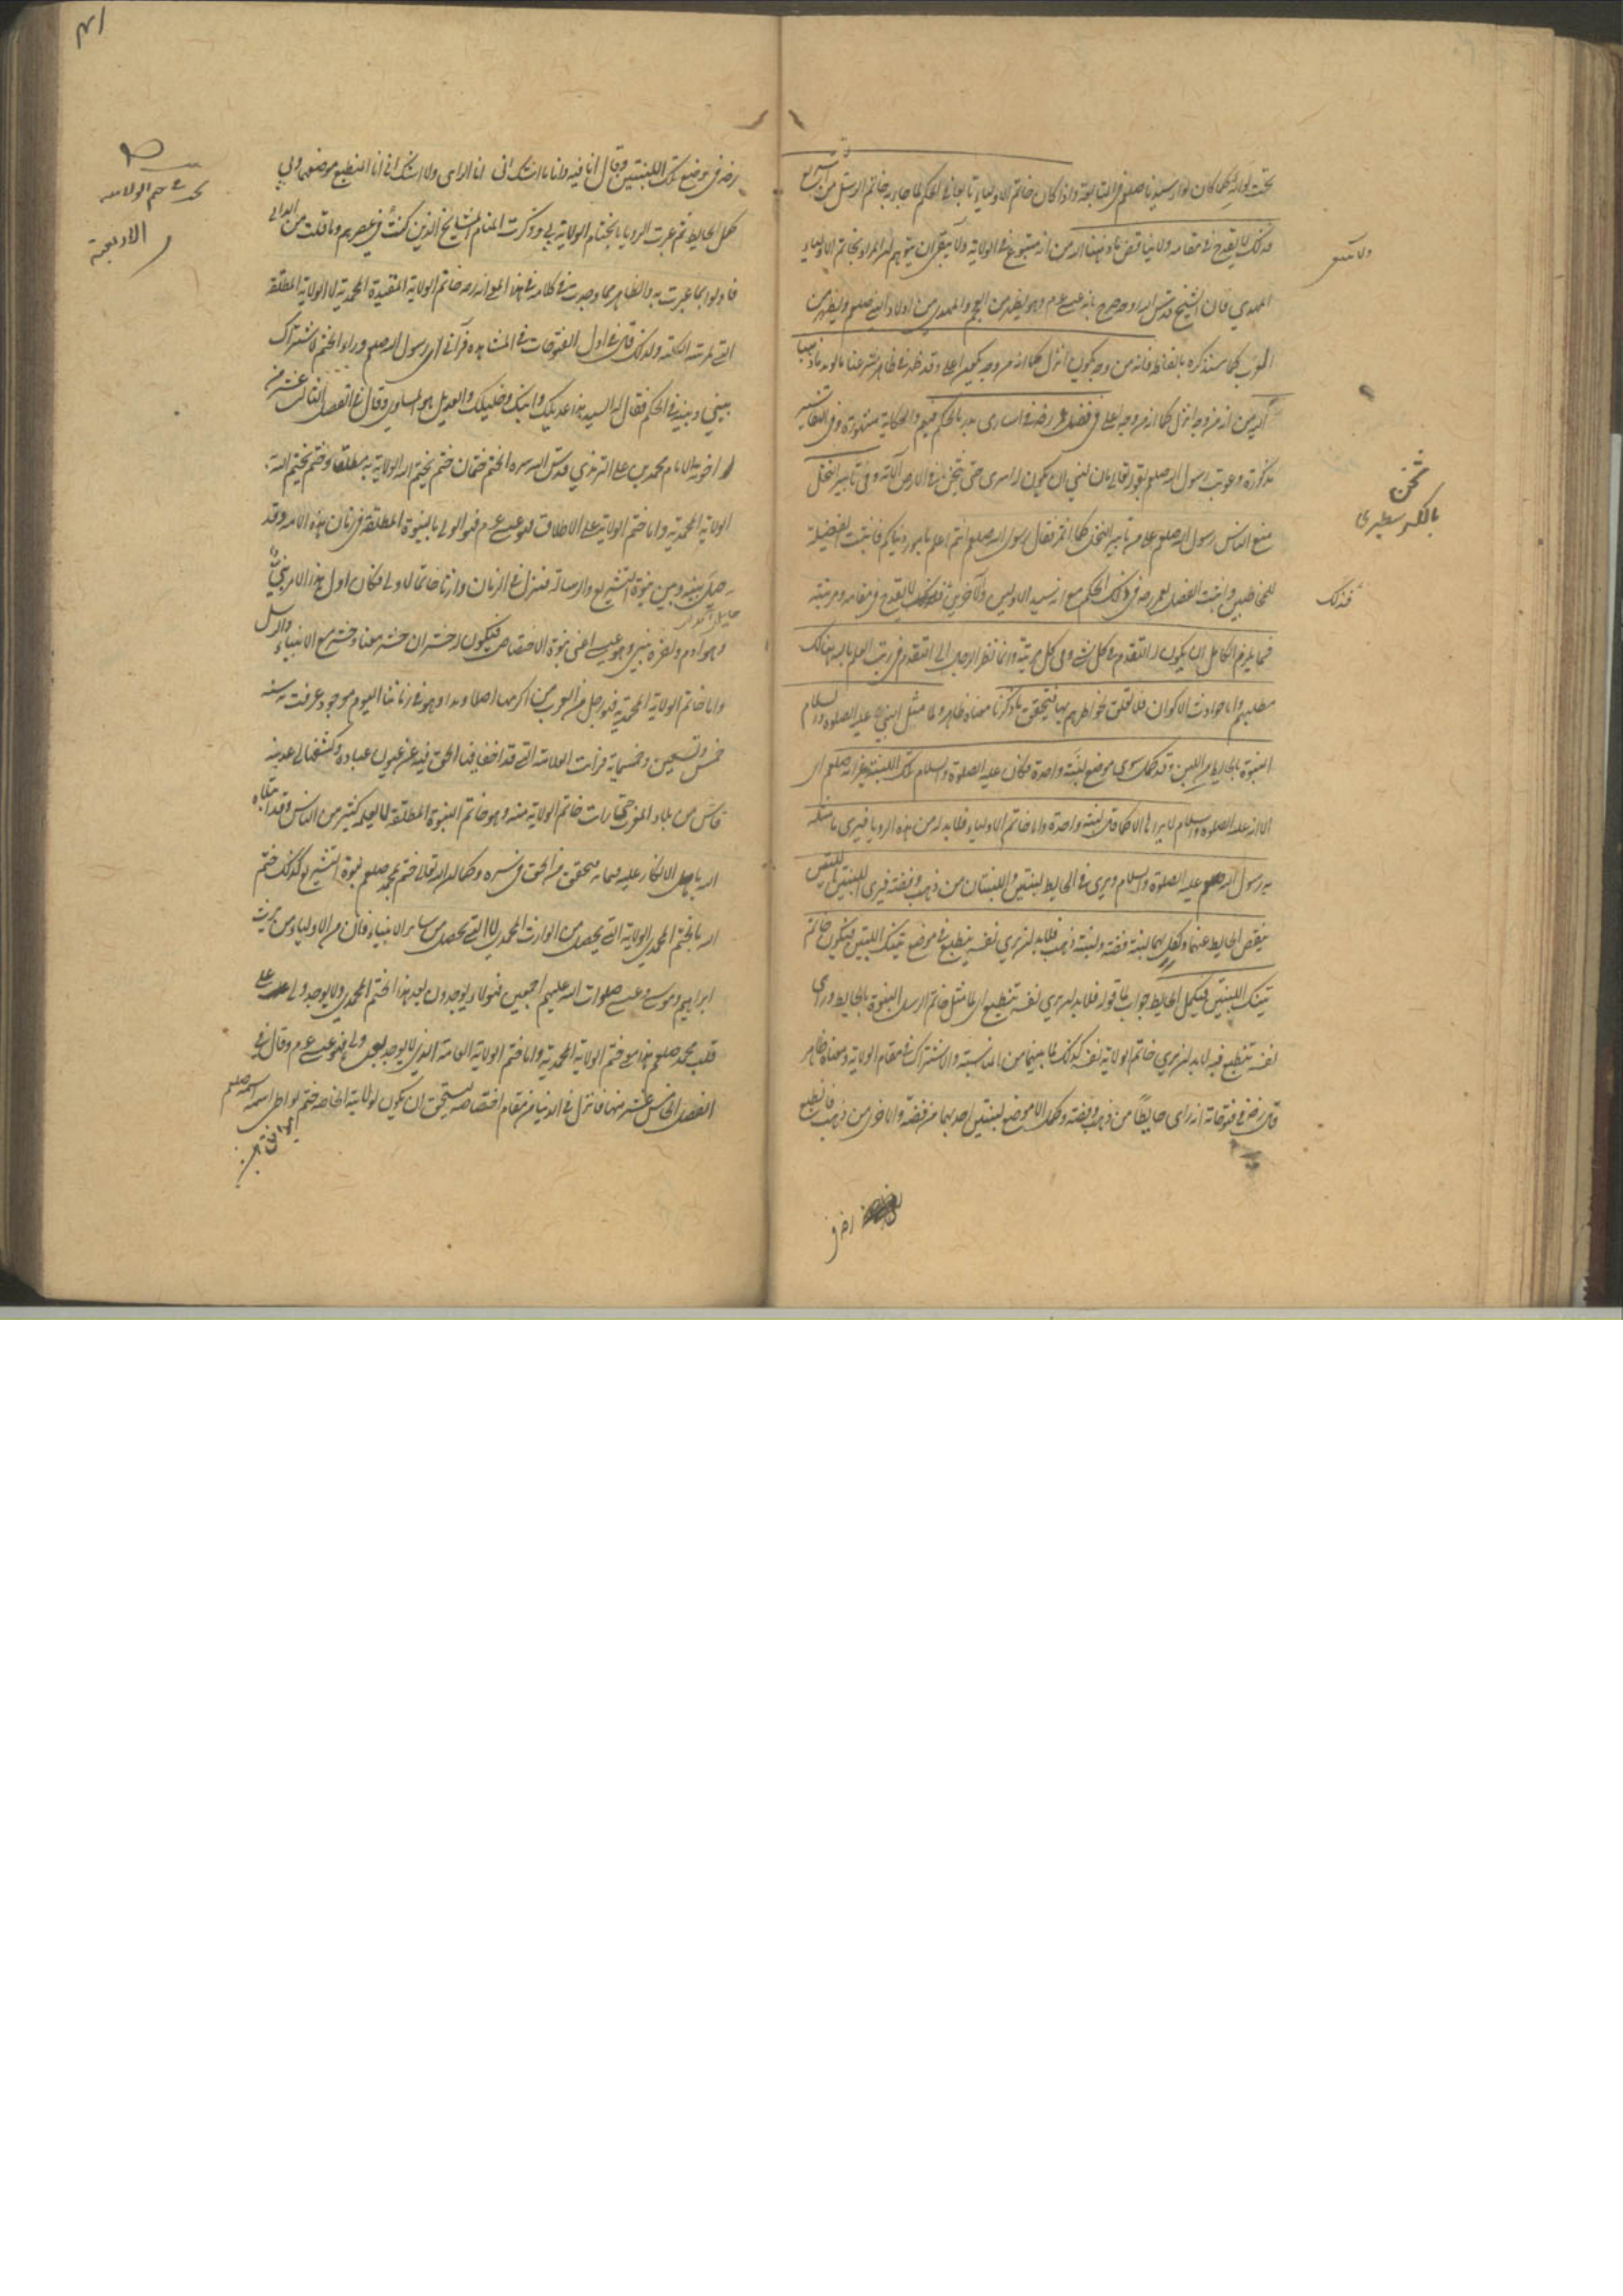 تحت لوائه كما كان لواء سيدنا صلعم في المتابعة واذا كان خاتم الاولياء تابعا في الحكم لما جاء به خاتم الرسل من التشريع
فذلك لا يقدح في مقامه ولا يناقض ما ذهبنا اليه من انه متبوع في الولاية ولا ينبغي ان يتوهم ان المراد بخاتم الاولياء
المهدي فان الشيخ قدس الله روحه صرح بانه عيسى عم وهو يظهر من العجم والمهدي من اولاد النبي صلعم ويظهر من
العرب كما سنذكره بالفاظه فانه من وجه يكون انزل كما انه من وجه يكون اعلى وقد ظهر في ظاهر شرعنا ما يؤيد ما ذهبنا
اليه من انه من وجه انزل كما انه من وجه اعلى في فضل عمر رضه في اسارى بدر بالحكم فيهم والحكاية مشهورة وفي التفاسير
مذكورة وعوتب رسول الله صلعم بقوله تعالى ما كان لنبي ان يكون له اسرى حتى يثخن في الارض الآية وفي تأبير النخل
منع الناس رسول الله صلعم عام تأبير النخل فما اثمر فقال رسول الله صلعم انتم اعلم بامور دنياكم فاثبت الفضيلة
للمخاطبين واثبت الفضل لعمر رضه في ذلك الحكم مع انه سيد الاولين والآخرين فذلك لا يقدح في مقامه ومرتبته
فما يلزم الكامل ان يكون له التقدم في كل شيء وفي كل مرتبة وانما نظر الرجال الى التقدم في رتب العلم بالله هنالك
مطلبهم واما حوادث الاكوان فلا تعلق لخواطرهم بها فتحقق ما ذكرناه معناه ظاهر ولما مثل النبي عليه الصلوة والسلام
النبوة بالحايط من اللبن وقد كمل سوى موضع لبنة واحدة فكان عليه الصلوة والسلام تلك اللبنة غير انه صلعم اي
الا انه عليه الصلوة والسلام لا يراها الا كما قال لبنة واحدة واما خاتم الاولياء فلا بد له من هذه الرويا فيرى ما مثله
به رسول الله صلعم عليه الصلوة والسلام ويرى في الحايط لبنتين واللبنتان من ذهب وفضة فيرى اللبنتين اللتين
ينقص الحايط عنهما وتكمل بهما لبنة فضة ولبنة ذهب فلا بد ان يرى نفسه ينطبع في موضع تينك اللبنتين فيكون خاتم
تينك اللبنتين فيكمل الحايط جواب لما قوله فلا بد ان يرى نفسه تنطبع اي لما مثل خاتم الرسل النبوة بالحايط وراى
نفسه تنطبع فيه لا بد ان يرى خاتم الولاية نفسه كذلك لما بينهما من المناسبة والاشتراك في مقام الولاية ومعناه ظاهر
قال رضه في فتوحاته انه راى حايطا من ذهب وفضة وكمل الا موضع لبنتين احديهما من فضة والاخرى من ذهب فانطبع
ثخن
فذلك
رضه في موضع تلك اللبنتين وقال انا فيه وانا لا اشك اني انا الرائي ولا اشك اني انا المنطبع موضعهما وبي
كمل الحايط ثم عبرت الرويا بانختام الولاية بي وذكرت المنام للمشايخ الذين كنت في عصرهم وما قلت من الرائي
فاولوا بما عبرت به والظاهر مما وجدت في كلامه في هذا المعنى انه رضه خاتم الولاية المقيدة المحمدية لا الولاية المطلقة
التي لمرتبته الكلية ولذلك قال في اول الفتوحات في المشاهدة فرآني اي رسول الله صلعم وراء الختم لاشتراك
بيني وبينه في الحكم فقال له السيد هذا عديلك وابنك وخليلك والعديل هو المساوي وقال في الفصل الثالث عشر من
اجوبة الامام محمد بن علي الترمذي قدس الله سره الختم ختمان ختم يختم الله الولاية به مطلقا وختم يختم الله به
الولاية المحمدية واما ختم الولاية على الاطلاق فهو عيسى عم فهو الولي بالنبوة المطلقة في زمان هذه الامة وقد
حيل بينه وبين نبوة التشريع والرسالة فينزل في اخر الزمان وارثا خاتما لا ولي فكان اول هذا الامر نبي
وهو آدم واخره نبي وهو عيسى اعني نبوة الاختصاص فيكون له حشران حشر معنا وحشر مع الانبياء والرسل
واما ختم الولاية المحمدية فهو لرجل من العرب من اكرمها اصلا ويدا وهو في زماننا اليوم موجود عرفت به سنة
خمس وتسعين وخمسماية ورايت العلامة التي قد اخفاها الحق فيه عن عيون عباده وكشفها لي بمدينة
فاس من بلاد المغرب حتى رايت خاتم الولاية منه وهو خاتم النبوة المطلقة لا يعلمه كثير من الناس وقد ابتلاه
الله باهل الانكار عليه فيما يتحقق به من الحق في سره وكما ان الله تعالى ختم بمحمد صلعم نبوة التشريع كذلك ختم
الله بالختم المحمدي الولاية التي تحصل من الوارث المحمدي لا التي تحصل من سائر الانبياء فان من الاولياء من يرث
ابراهيم وموسى وعيسى صلوات الله عليهم اجمعين فهؤلاء يوجدون بعد هذا الختم المحمدي ولا يوجد ولي على
قلب محمد صلعم هذا معنى ختم الولاية المحمدية واما ختم الولاية العامة الذي لا يوجد بعده ولي فهو عيسى عم وقال في
الفصل الخامس عشر منها فانزل في الدنيا من مقام اختصاصه يستحق ان يكون لولايته الخاصة ختم يواطي اسمه اسمه صلعم